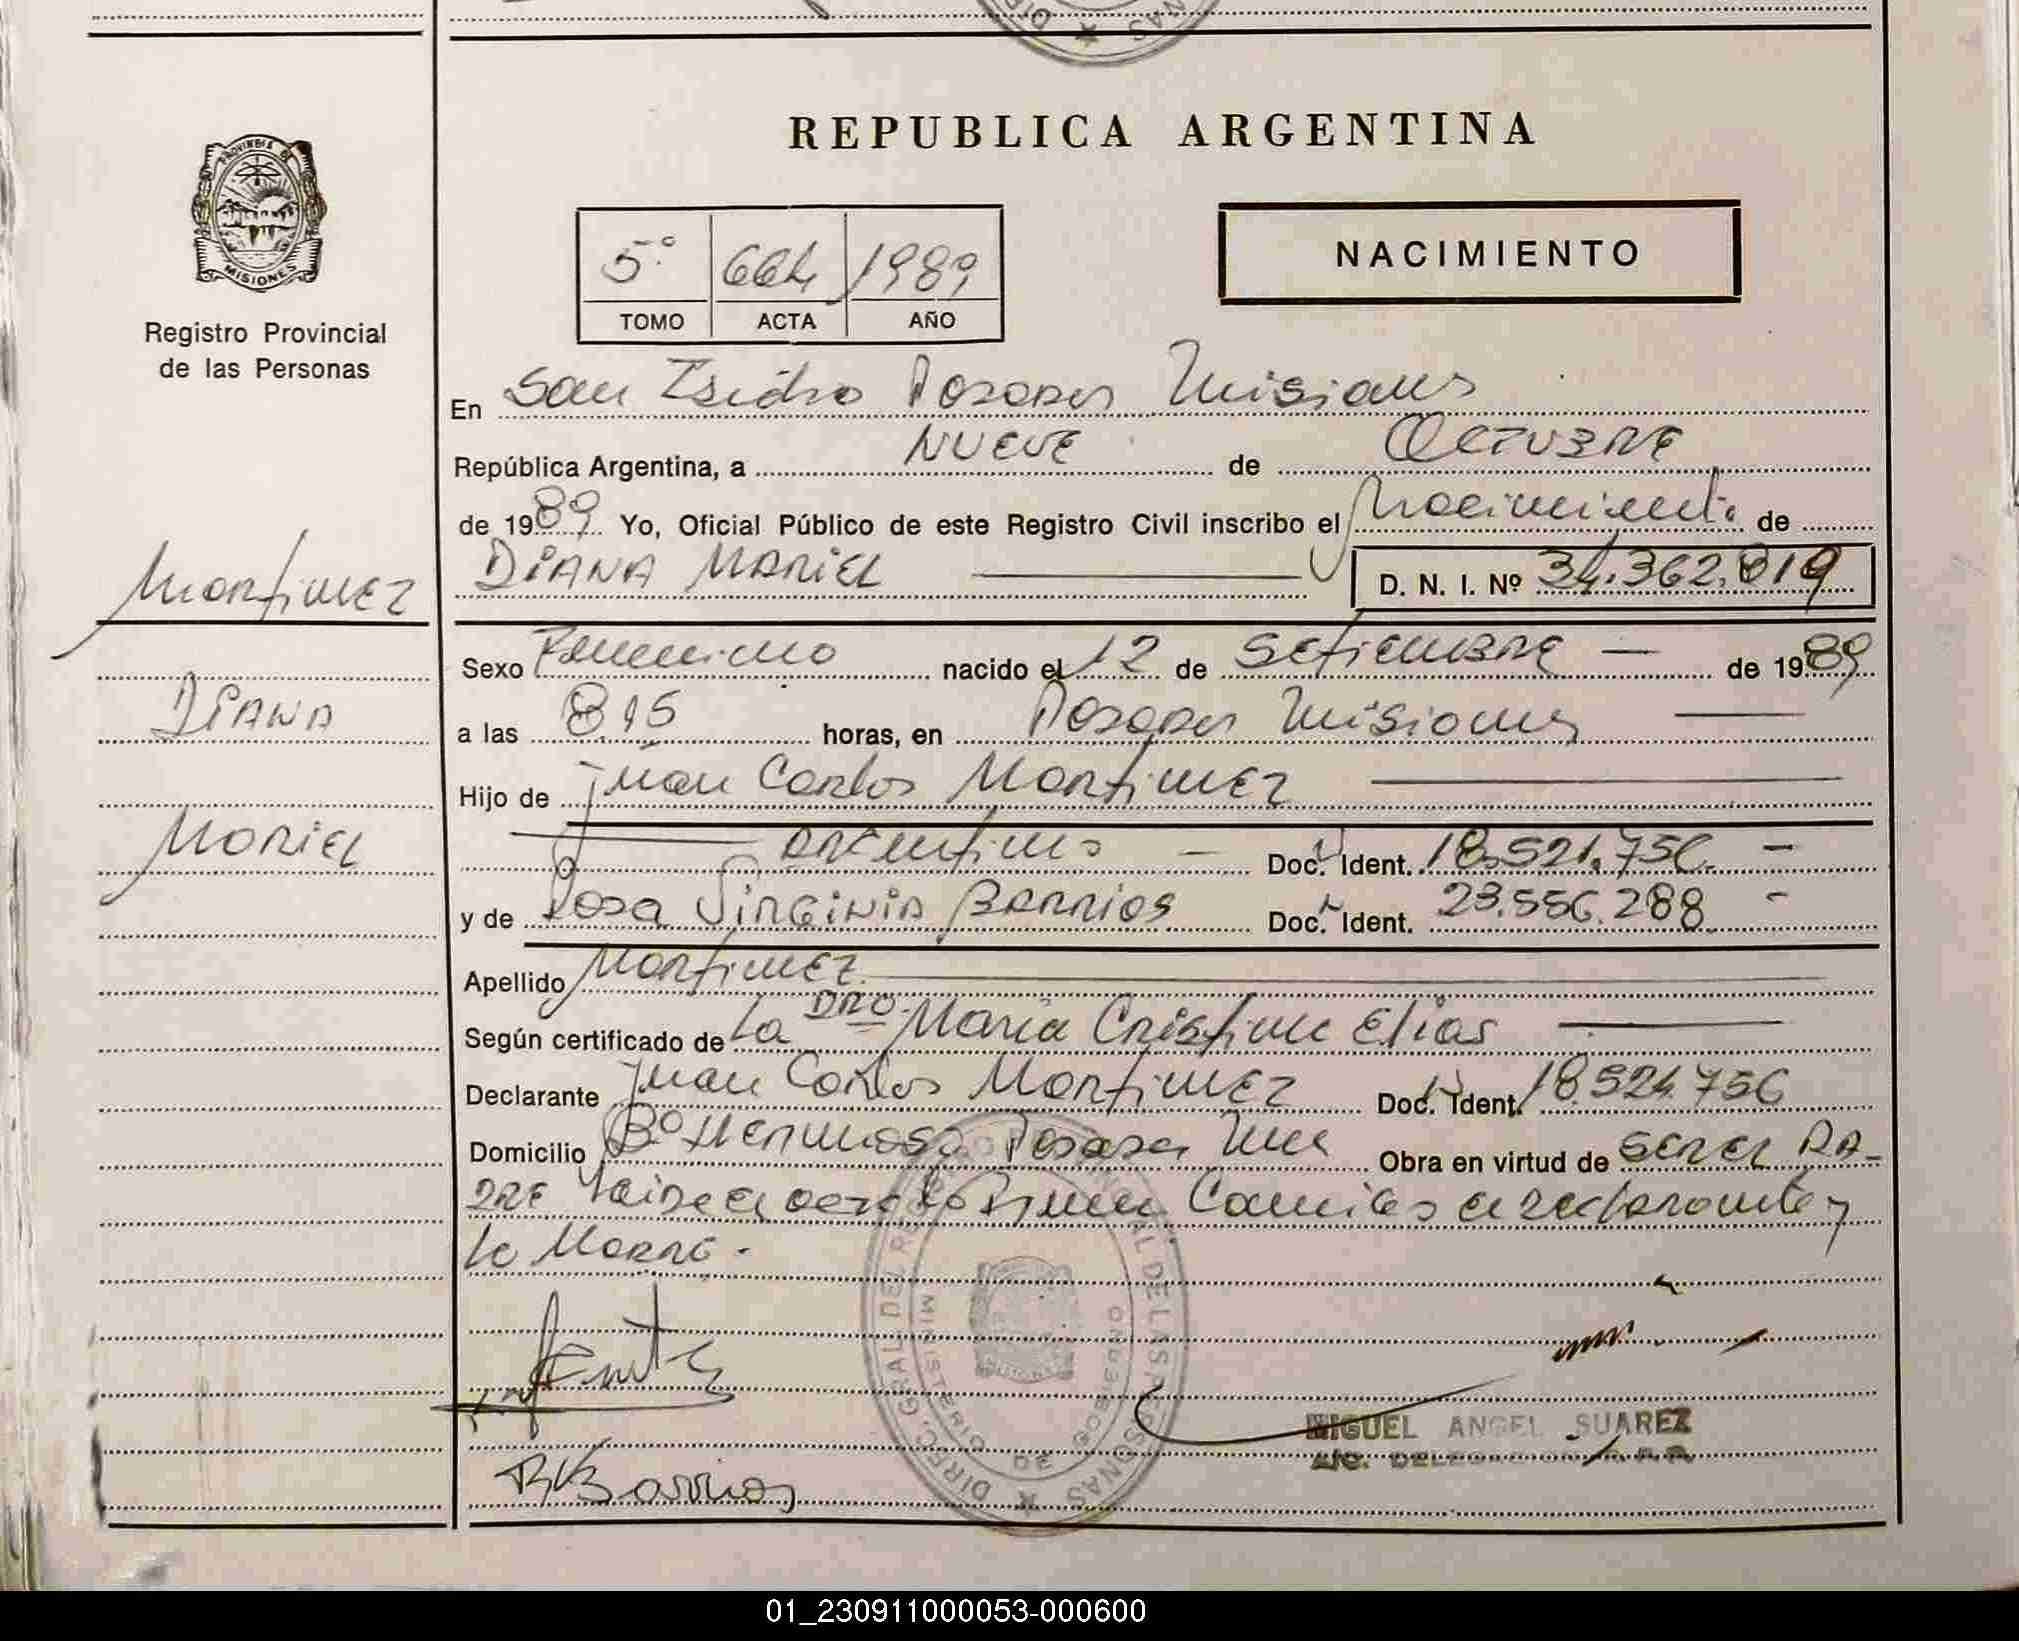 REPUBLICA ARGENTINA
PROVINCIA DE
MISIONES
Registro Provincial
de las Personas
NACIMIENTO
5° 664 1989
TOMO ACTA AÑO
En San Isidro Posadas Misiones
República Argentina, a NUEVE de OCTUBRE
de 1989 Yo, Oficial Público de este Registro Civil inscribo el Nacimiento de
Martinez
DIANA MARIEL D. N. I. Nº 34.362.819
Sexo Femenino nacido el 12 de SETIEMBRE de 1989
DIANA
a las 8,15 horas, en Posadas Misiones
Hijo de Juan Carlos Martinez
MARIEL
argentinos Doc. Ident. 18.521.756
y de Rosa Virginia Barrios Doc. Ident. 23.556.288
Apellido Martinez
Según certificado de La DRA. Maria Cristina Elias
Declarante Juan Carlos Martinez Doc. Ident. 18.521.756
Domicilio B° Hermoso Posadas Mnes Obra en virtud de SER EL PA-
DRE Leida el acta la firman Conmigo el declarante y
la Madre.
MIGUEL ANGEL SUAREZ
RVBarrios
01_230911000053-000600